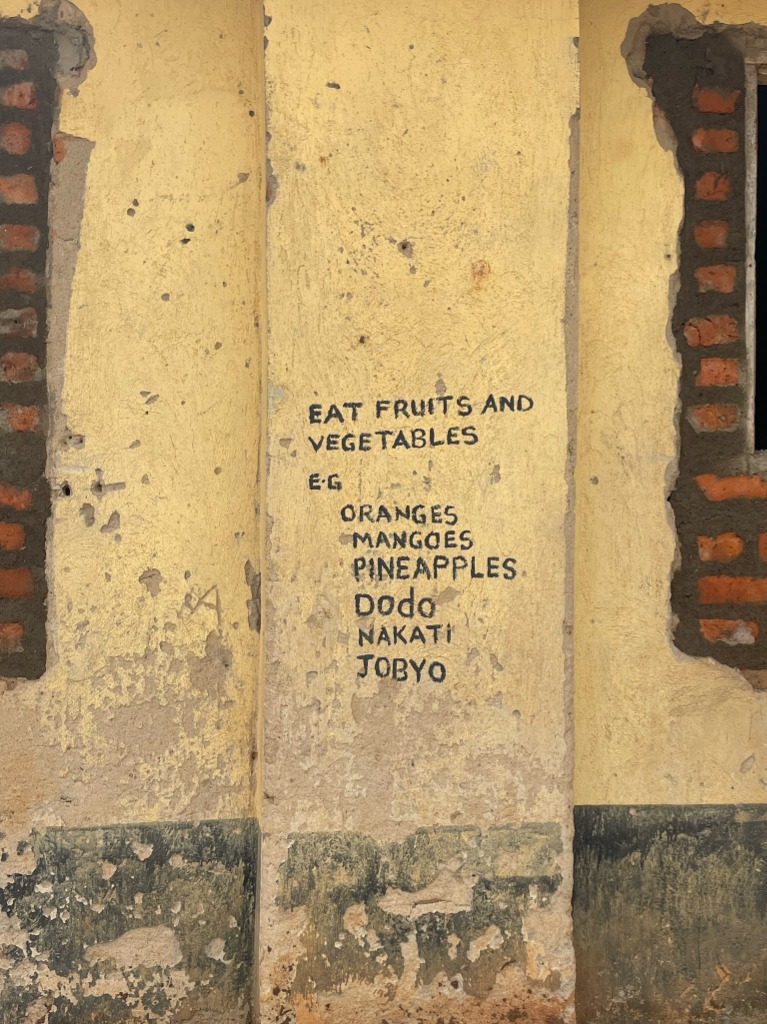 EAT FRUITS AND
VEGETABLES
E.G
ORANGES
MANGOES
PINEAPPLES
DoDo
NAKATi
JOBYO